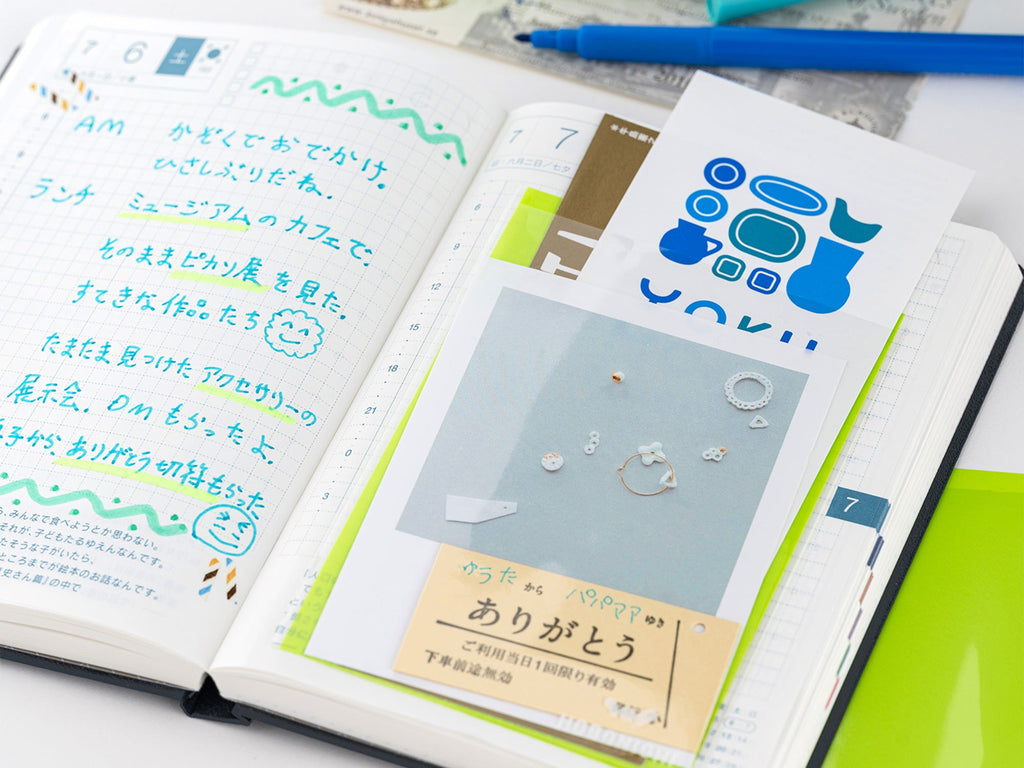 7 6 土
AM かぞくでおでかけ。
ひさしぶりだね、
ランチ ミュージアムのカフェで。
そのままピカソ展を見た。
すてきな作品たち
たまたま見つけたアクセサリーの
展示会、DMもらったよ。
子から、ありがとう切符もらった
、みんなで食べようとか思わない。
それが、子どもたるゆえんなんです。
たそうな子がいたら、
ところまでが絵本のお話なんです。
史さん篇』の中で
7 7
6
9
12
15
18
21
0
3
YOKU
ゆうたから パパママゆき
ありがとう
ご利用当日1回限り有効
下車前途無効
7